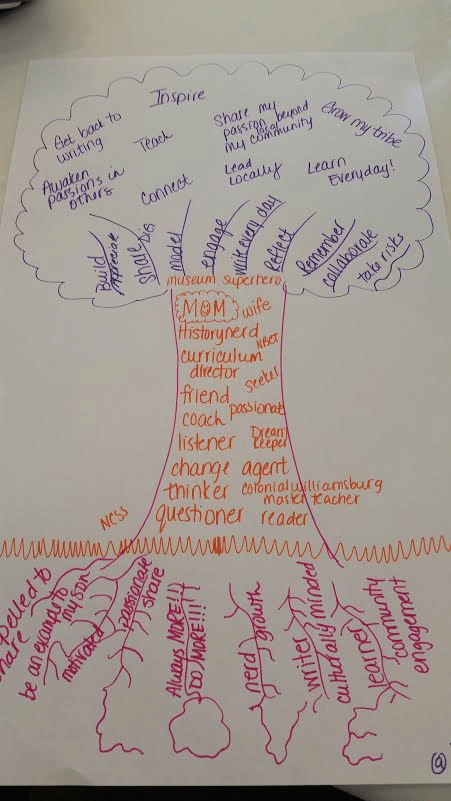 Inspire
Get back to
writing
Teach
Share my
passion beyond
local
my community
Grow my tribe
Awaken
passions in
others
Connect
Lead
Locally
Learn
Everyday!
Build
Appreciate
share
DIG
model
engage
write every day
Reflect
Remember
collaborate
take risks
museum superhero
MOM
wife
History nerd
NBCT
curriculum
director
seeker
friend
coach
passionate
listener
Dream
Keeper
change agent
thinker
colonial williamsburg
master teacher
questioner
reader
NCSS
pelled to
share
be an example to
my son
motivated
passionate
share
Always MORE!!!
DO MORE!!!!
need
growth
writer
culturally minded
learner
community
engagement